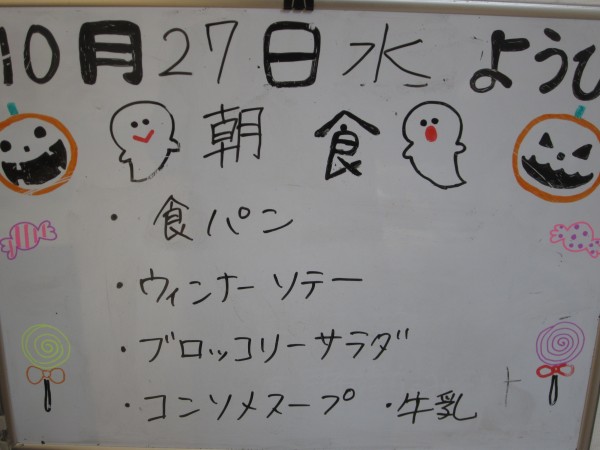 10月27日水ようび
朝食
・食パン
・ウィンナーソテー
・ブロッコリーサラダ
・コンソメスープ ・牛乳